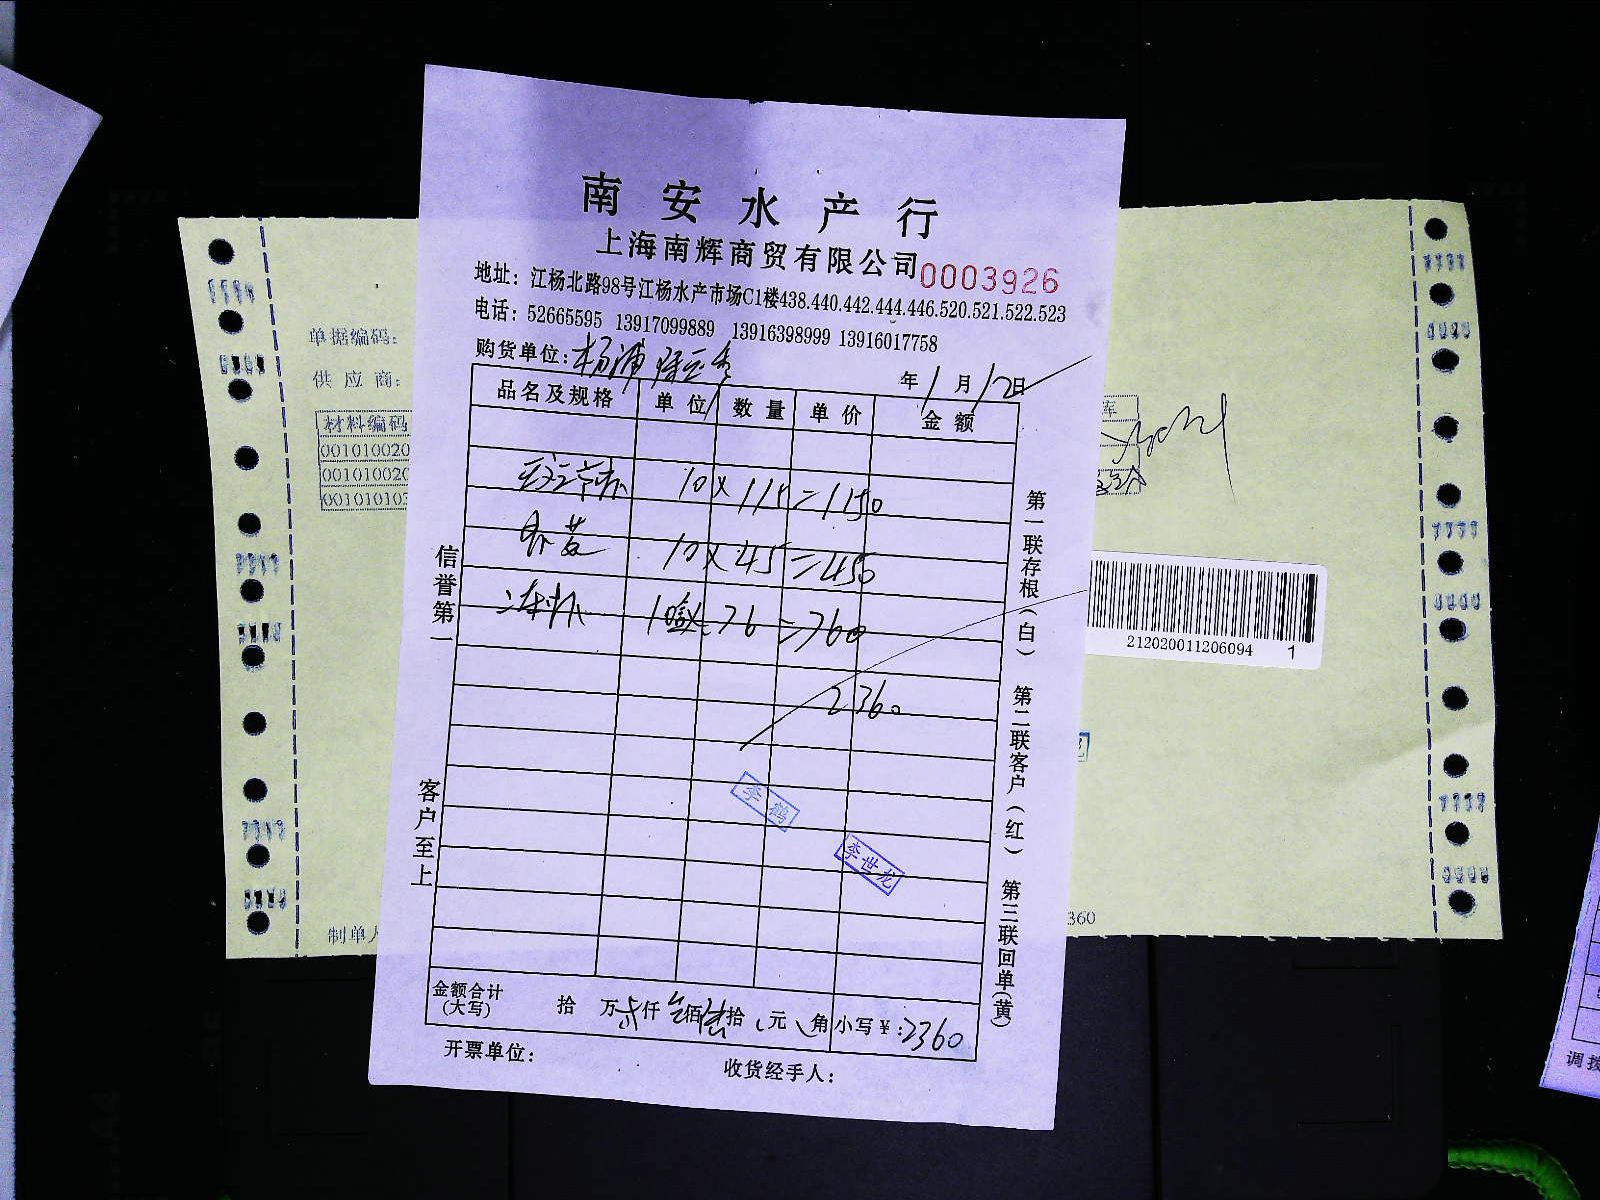 南安水产行
上海南辉商贸有限公司 0003926
地址：江杨北路98号江杨水产市场C1楼438.440.442.444.446.520.521.522.523
电话：52665595 13917099889 13916398999 13916017758
购货单位：杨浦
年1月12日
品名及规格 单位 数量 单价 金额
10×115=1150
10×45=450
10 76=760
2360
信誉第一
客户至上
李鹤
李世龙
金额合计(大写) 拾 万贰仟叁佰陆拾 元 角 小写￥:2360
开票单位：
收货经手人：
第一联存根(白) 第二联客户(红) 第三联回单(黄)
单据编码：
供应商：
材料编码
001010020
001010020
001010103
库
制单人
360
212020011206094 1
调拨